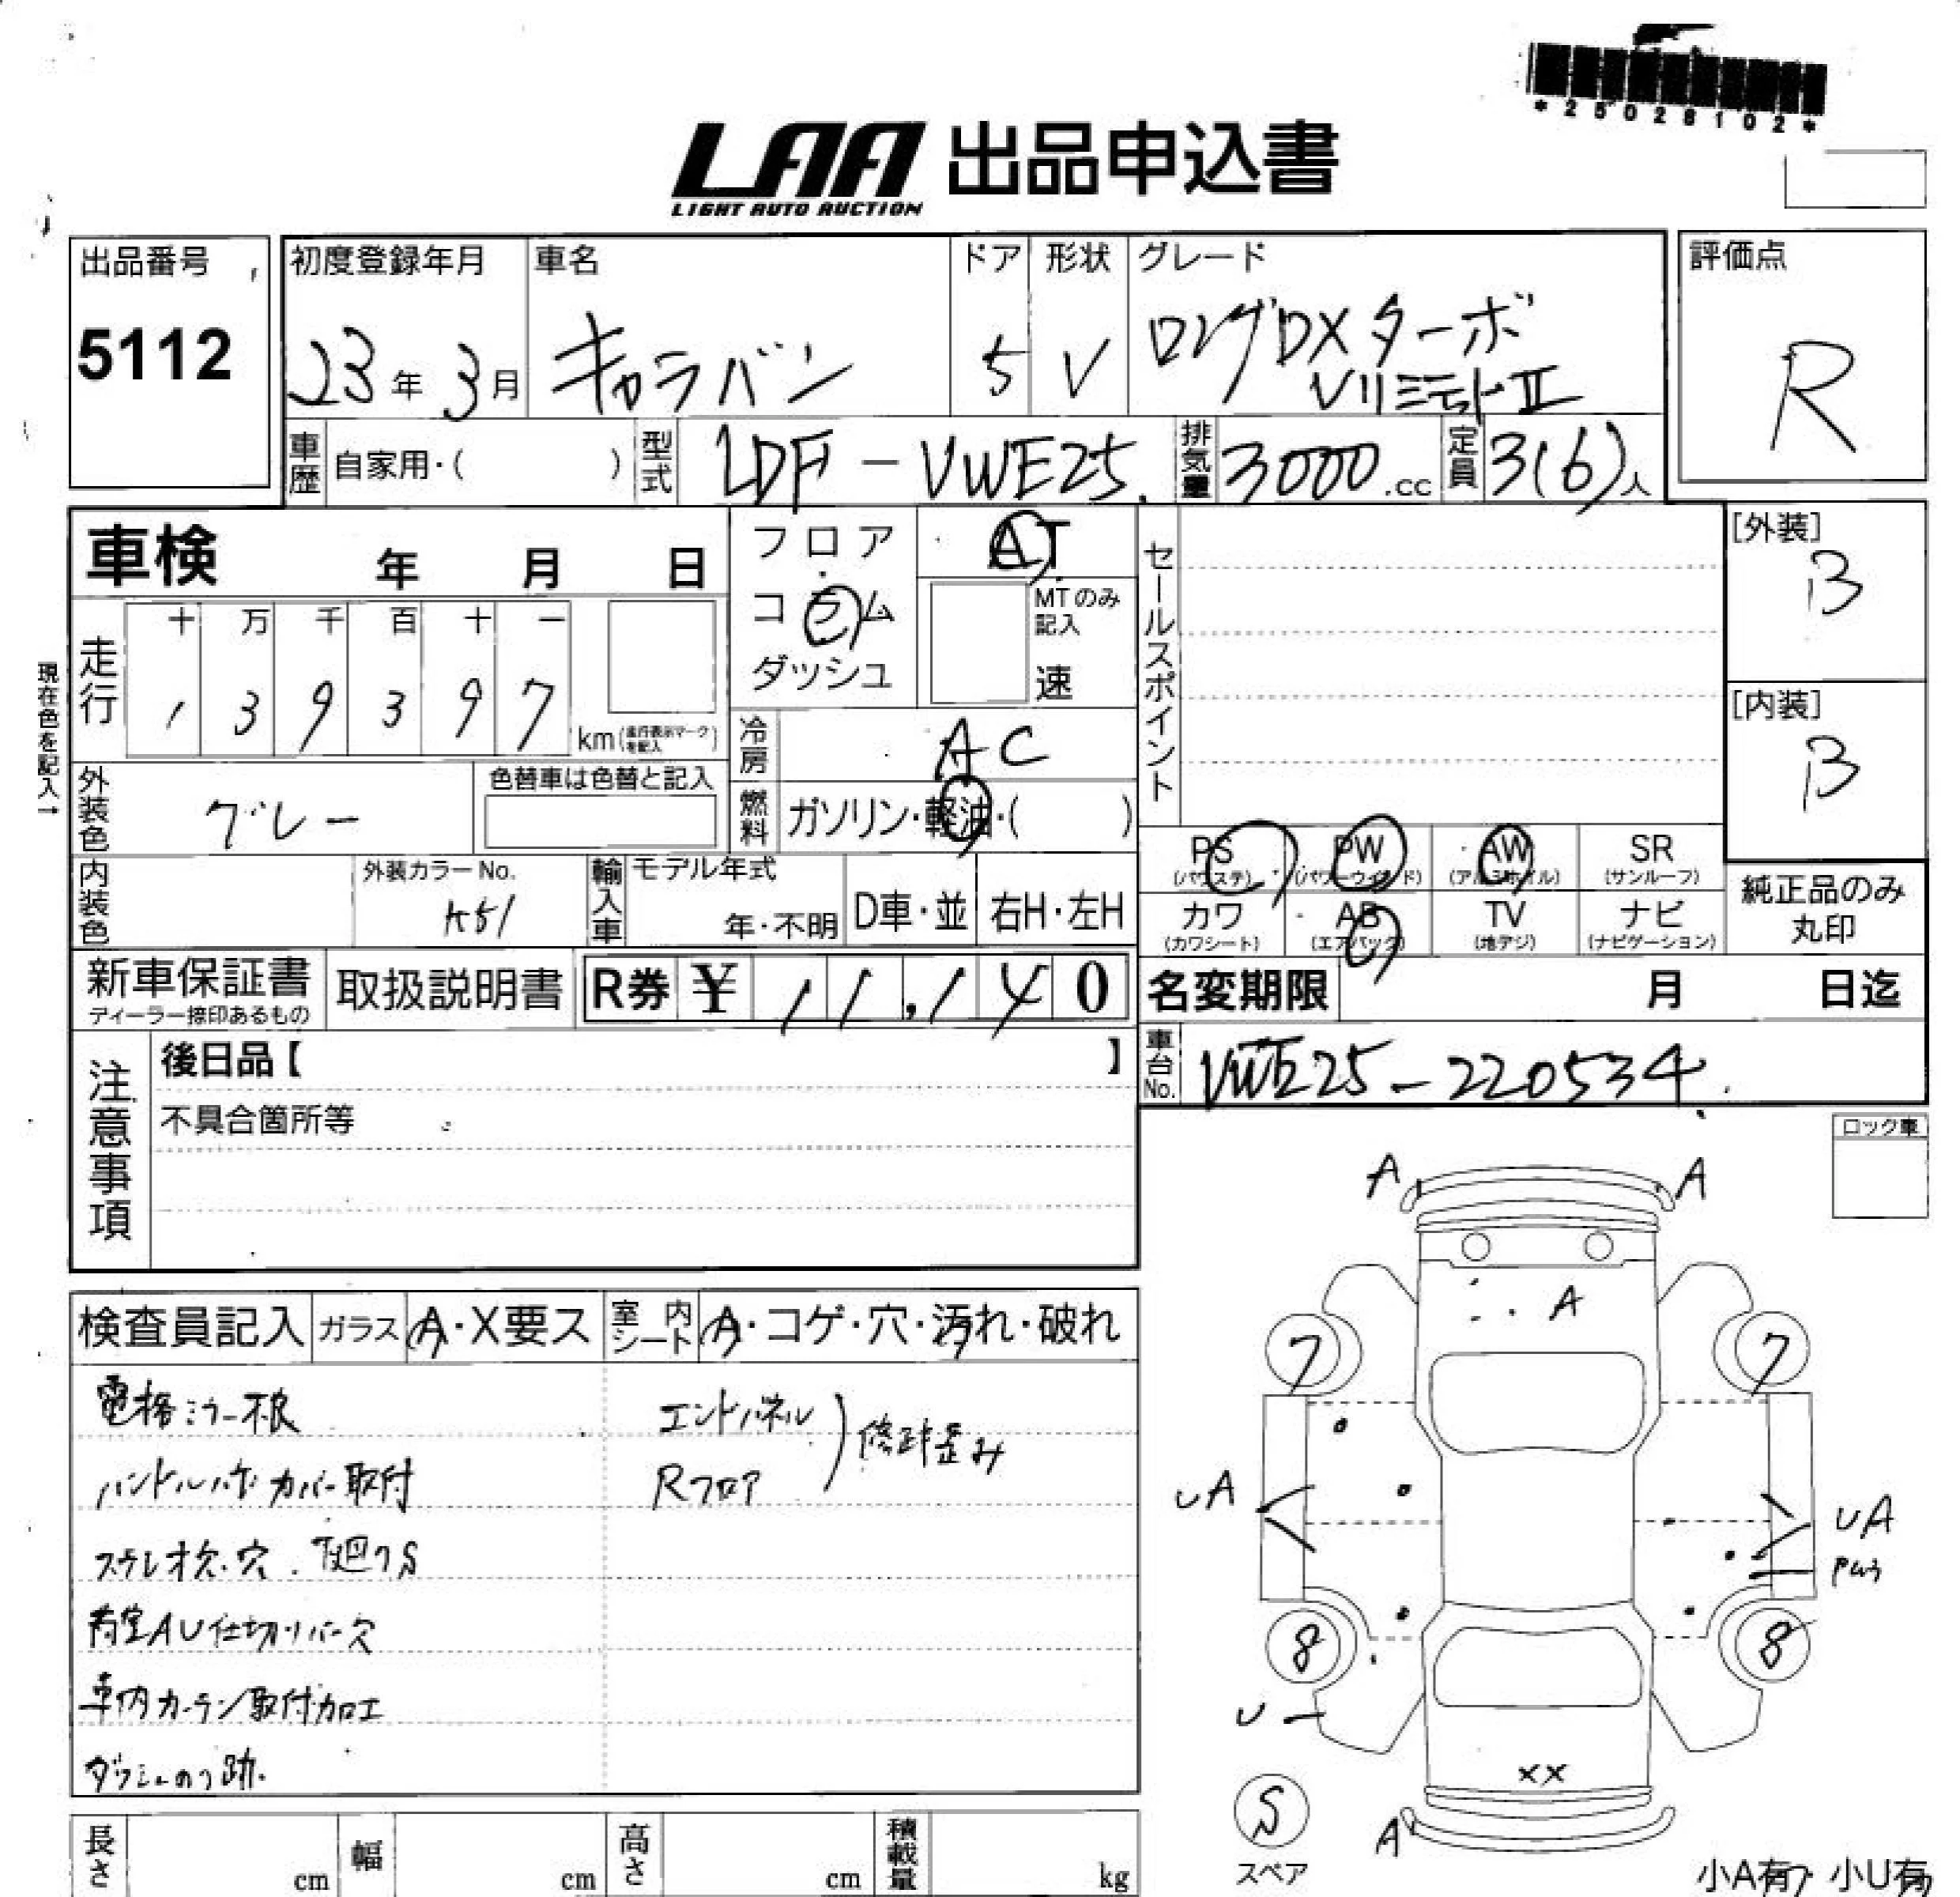 *25028102*
LAA 出品申込書
LIGHT AUTO AUCTION
出品番号
5112
初度登録年月
23年3月
車名
キャラバン
ドア
5
形状
V
グレード
ロングDXターボ
VリミテットⅡ
評価点
R
車歴 自家用・( )
型式 LDF-VWE25
排気量 3000.cc
定員 3(6)人
車検 年 月 日
フロア・コラム ダッシュ
AT
MTのみ記入
速
セールスポイント
[外装]
B
[内装]
B
現在色を記入→
走行
十 万 千 百 十 一
1 3 9 3 9 7
km(走行表示マークを記入)
冷房 AC
燃料 ガソリン・軽油・( )
外装色 グレー
色替車は色替と記入
内装色
外装カラーNo.
K51
輸入車 モデル年式
年・不明 D車・並 右H・左H
PS (パワステ)
PW (パワーウインド)
AW (アルミホイル)
SR (サンルーフ)
カワ (カワシート)
AB (エアバック)
TV (地デジ)
ナビ (ナビゲーション)
純正品のみ
丸印
新車保証書
ディーラー捺印あるもの
取扱説明書
R券 ¥ 11,140
名変期限 月 日迄
車台No. VWE25-220534
注意事項
後日品【 】
不具合箇所等
ロック車
検査員記入
ガラス A・X要ス
室内シート A・コゲ・穴・汚れ・破れ
電格ミラー不良
ハンドルハゲ カバー取付
ステレオ欠・穴. 下廻りS
荷室AU仕切りバー欠
車内カーテン取付加工
エンドパネル
Rフロア
修跡歪み
A A
A
7 7
UA UA
8 8
U
XX
A
S
スペア
小A有 小U有
長さ cm
幅 cm
高さ cm
積載量 kg